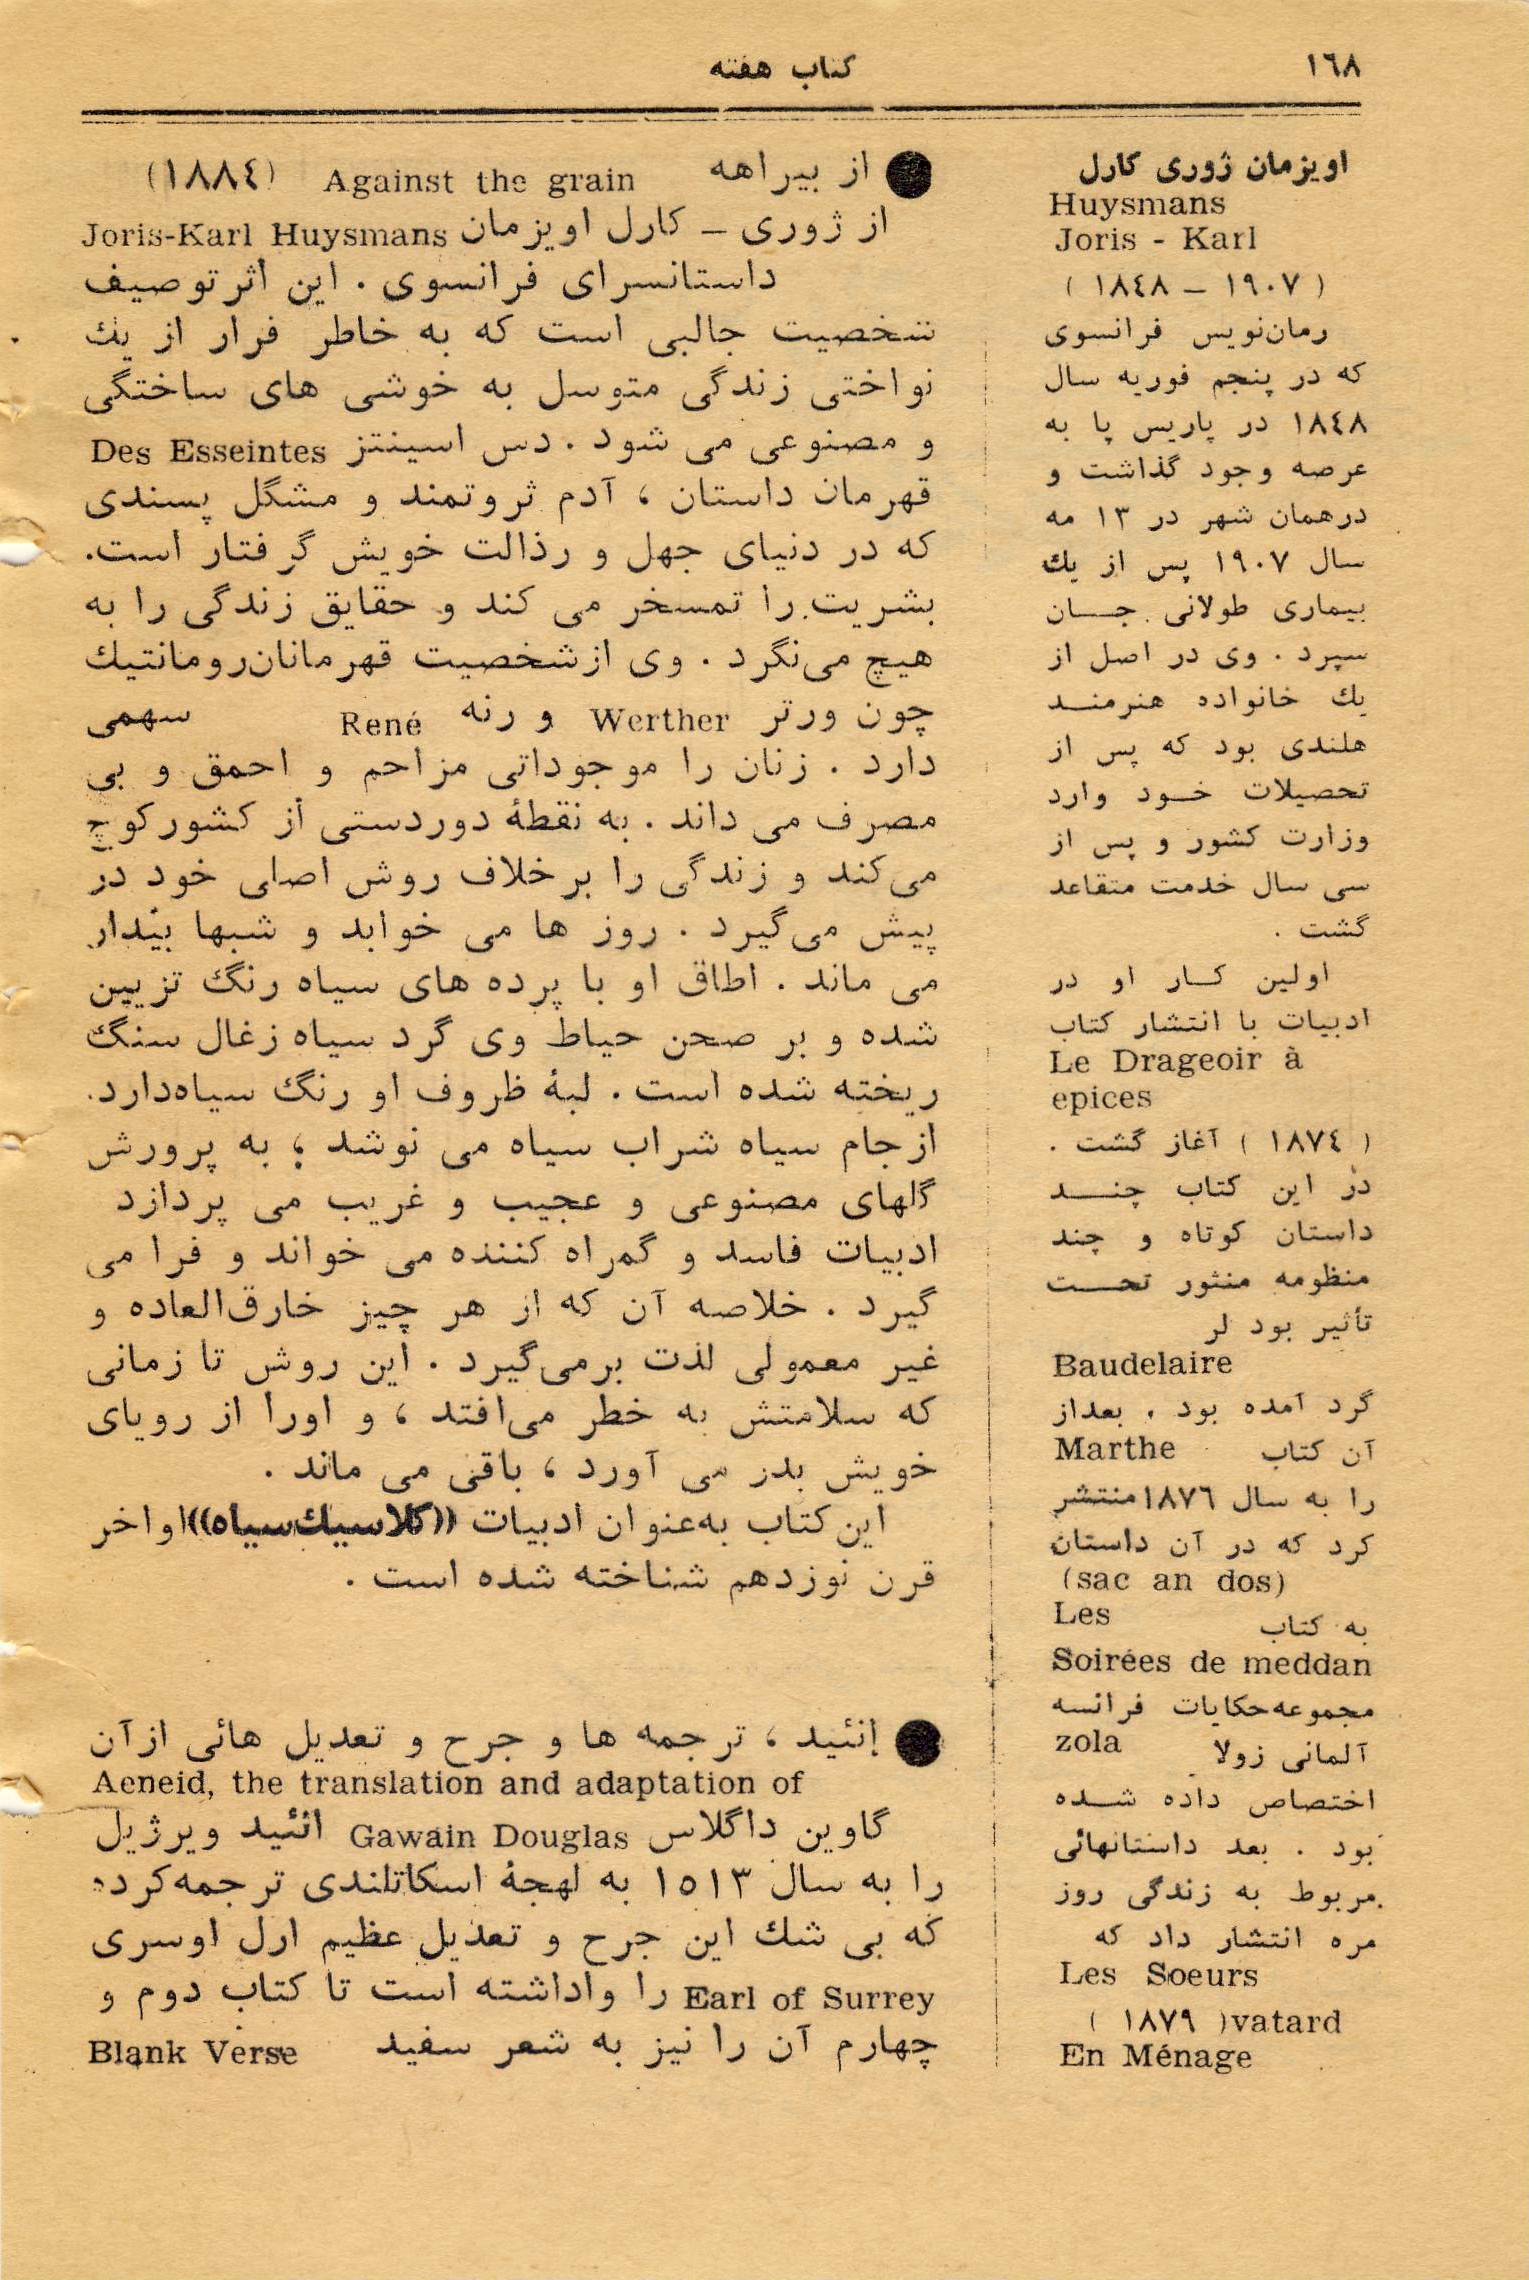 ۱٦۸
کتاب هفته
اویزمان ژوری کارل
Huysmans
Joris - Karl
( ۱۹۰۷ – ۱۸٤۸ )
رمان‌نویس فرانسوی
که در پنجم فوریه سال
۱۸٤۸ در پاریس پا به
عرصه وجود گذاشت و
درهمان شهر در ۱۳ مه
سال ۱۹۰۷ پس از یك
بیماری طولانی جـــان
سپرد . وی در اصل از
یك خانواده هنرمنــد
هلندی بود که پس از
تحصیلات خــود وارد
وزارت کشور و پس از
سی سال خدمت متقاعد
گشت .
اولین کــار او در
ادبیات با انتشار کتاب
Le Drageoir à
epices
( ۱۸۷٤ ) آغاز گشت .
در این کتاب چنـــد
داستان کوتاه و چند
منظومه منثور تحـــت
تأثیر بود لر
Baudelaire
گرد آمده بود . بعداز
آن کتاب Marthe
را به سال ۱۸۷٦منتشر
کرد که در آن داستان
(sac an dos)
به کتاب Les
Soirées de meddan
مجموعه‌حکایات فرانسه
آلمانی زولا zola
اختصاص داده شــده
بود . بعد داستانهائی
مربوط به زندگی روز
مره انتشار داد که
Les Soeurs
vatard( ۱۸۷۹ )
En Ménage
● از بیراهه Against the grain (۱۸۸٤)
از ژوری – کارل اویزمان Joris-Karl Huysmans
داستانسرای فرانسوی . این اثرتوصیف
شخصیت جالبی است که به خاطر فرار از یك
نواختی زندگی متوسل به خوشی های ساختگی
و مصنوعی می شود . دس اسینتز Des Esseintes
قهرمان داستان ، آدم ثروتمند و مشگل پسندی
که در دنیای جهل و رذالت خویش گرفتار است.
بشریت را تمسخر می کند و حقایق زندگی را به
هیچ می‌نگرد . وی ازشخصیت قهرمانان‌رومانتیك
چون ورتر Werther و رنه René سهمی
دارد . زنان را موجوداتی مزاحم و احمق و بی
مصرف می داند . به نقطهٔ دوردستی از کشورکوچ
می‌کند و زندگی را برخلاف روش اصلی خود در
پیش می‌گیرد . روز ها می خوابد و شبها بیدار
می ماند . اطاق او با پرده های سیاه رنگ تزیین
شده و بر صحن حیاط وی گرد سیاه زغال سنگ
ریخته شده است . لبهٔ ظروف او رنگ سیاه‌دارد.
ازجام سیاه شراب سیاه می نوشد ؛ به پرورش
گلهای مصنوعی و عجیب و غریب می پردازد
ادبیات فاسد و گمراه کننده می خواند و فرا می
گیرد . خلاصه آن که از هر چیز خارق‌العاده و
غیر معمولی لذت برمی‌گیرد . این روش تا زمانی
که سلامتش به خطر می‌افتد ، و اورا از رویای
خویش بدر می آورد ، باقی می ماند .
این کتاب به‌عنوان ادبیات ((کلاسیك‌سیاه))اواخر
قرن نوزدهم شناخته شده است .
● إنئید ، ترجمه ها و جرح و تعدیل هائی ازآن
Aeneid, the translation and adaptation of
گاوین داگلاس Gawain Douglas انئید ویرژیل
را به سال ۱٥۱۳ به لهجهٔ اسکاتلندی ترجمه‌کرده
که بی شك این جرح و تعدیل عظیم ارل اوسری
Earl of Surrey را واداشته است تا کتاب دوم و
چهارم آن را نیز به شعر سفید Blank Verse